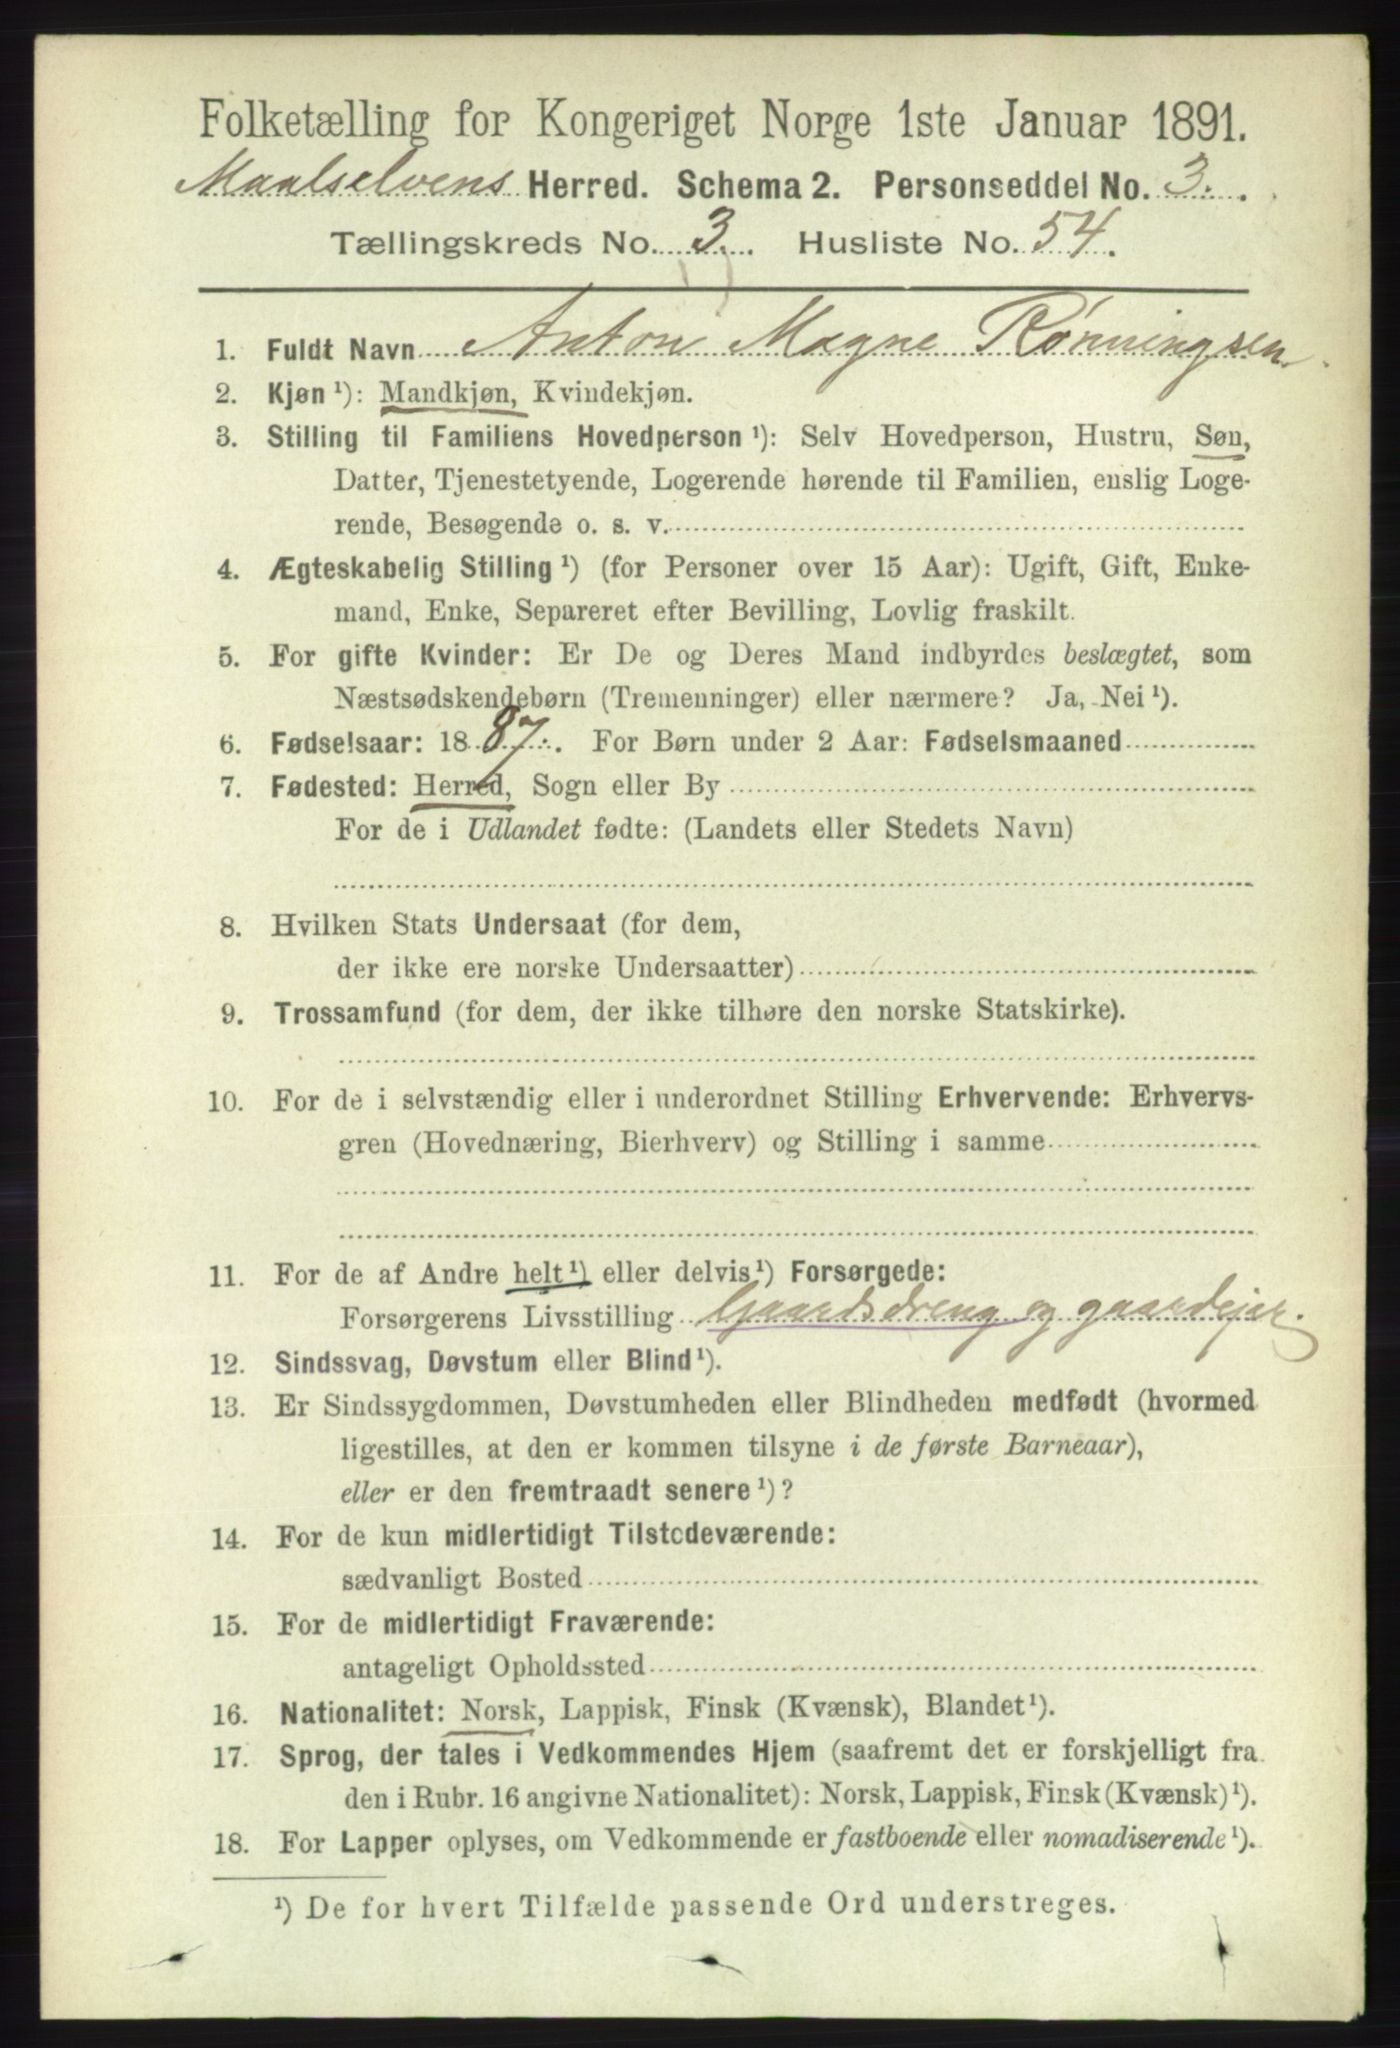 Folketælling for Kongeriget Norge 1ste Januar 1891.
Maalselvens Herred. Schema 2. Personseddel No. 3.
Tællingskreds No. 3. Husliste No. 54.
1. Fuldt Navn Anton Magne Rønningsen.
2. Kjøn ¹): Mandkjøn, Kvindekjøn.
3. Stilling til Familiens Hovedperson ¹): Selv Hovedperson, Hustru, Søn,
Datter, Tjenestetyende, Logerende hørende til Familien, enslig Loge-
rende, Besøgende o. s. v.
4. Ægteskabelig Stilling ¹) (for Personer over 15 Aar): Ugift, Gift, Enke-
mand, Enke, Separeret efter Bevilling, Lovlig fraskilt.
5. For gifte Kvinder: Er De og Deres Mand indbyrdes beslægtet, som
Næstsødskendebørn (Tremenninger) eller nærmere? Ja, Nei ¹).
6. Fødselsaar: 1887. For Børn under 2 Aar: Fødselsmaaned
7. Fødested: Herred, Sogn eller By
For de i Udlandet fødte: (Landets eller Stedets Navn)
8. Hvilken Stats Undersaat (for dem,
der ikke ere norske Undersaatter)
9. Trossamfund (for dem, der ikke tilhøre den norske Statskirke).
10. For de i selvstændig eller i underordnet Stilling Erhvervende: Erhvervs-
gren (Hovednæring, Bierhverv) og Stilling i samme
11. For de af Andre helt ¹) eller delvis ¹) Forsørgede:
Forsørgerens Livsstilling Gaardsdreng og gaardejer.
12. Sindssvag, Døvstum eller Blind ¹).
13. Er Sindssygdommen, Døvstumheden eller Blindheden medfødt (hvormed
ligestilles, at den er kommen tilsyne i de første Barneaar),
eller er den fremtraadt senere ¹)?
14. For de kun midlertidigt Tilstedeværende:
sædvanligt Bosted
15. For de midlertidigt Fraværende:
antageligt Opholdssted
16. Nationalitet: Norsk, Lappisk, Finsk (Kvænsk), Blandet ¹).
17. Sprog, der tales i Vedkommendes Hjem (saafremt det er forskjelligt fra
den i Rubr. 16 angivne Nationalitet): Norsk, Lappisk, Finsk (Kvænsk) ¹).
18. For Lapper oplyses, om Vedkommende er fastboende eller nomadiserende ¹).
¹) De for hvert Tilfælde passende Ord understreges.